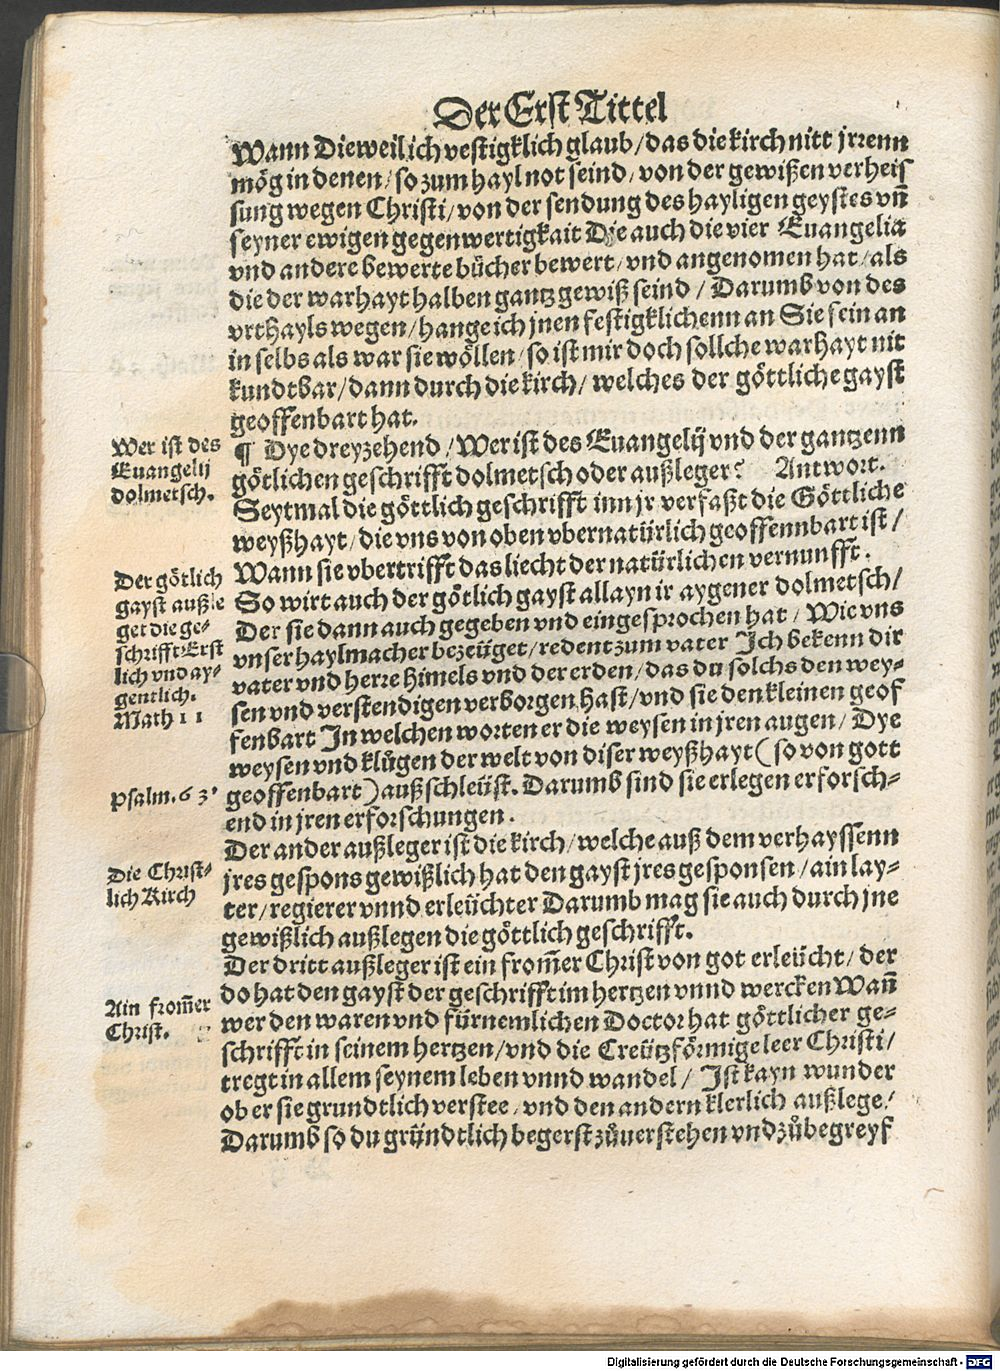 Der Erst Tittel
Wann Dieweil ich vestigklich glaub/das die kirch nitt jrrenn
mög in denen/so zum hayl not seind/von der gewißen verheis
sung wegen Christi/von der sendung des hayligen geystes vn̄
seyner ewigen gegenwertigkait Dye auch die vier Euangelia
vnd andere bewerte bücher bewert/vnd angenomen hat/als
die der warhayt halben gantz gewiß seind/Darumb von des
vrthayls wegen/hange ich jnen festigklichenn an Sie sein an
in selbs als war sie wöllen/so ist mir doch sollche warhayt nit
kundtbar/dann durch die kirch/welches der göttliche gayst
geoffenbart hat.
Wer ist des
Euangelij
dolmetsch.
¶ Dye dreyzehend/Wer ist des Euangelij vnd der gantzenn
götlichen geschrifft dolmetsch oder außleger? Antwort.
Seytmal die göttlich geschrifft inn jr verfaßt die Göttliche
weyßhayt/die vns von oben vbernatürlich geoffennbart ist/
Wann sie vbertrifft das liecht der natürlichen vernunfft.
Der götlich
gayst außle
get die ge-
schrifft Erst
lich vnd ay-
gentlich.
Math 11
So wirt auch der götlich gayst allayn ir aygener dolmetsch/
Der sie dann auch gegeben vnd eingesprochen hat/Wie vns
vnser haylmacher bezeüget/redent zum vater Ich bekenn dir
vater vnd herre himels vnd der erden/das du solchs den wey-
sen vnd verstendigen verborgen hast/vnd sie den kleinen geof
fenbart In welchen worten er die weysen in jren augen/Dye
weysen vnd klůgen der welt von diser weyßhayt(so von gott
psalm. 63.
geoffenbart)außschleüst. Darumb sind sie erlegen erforsch-
end in jren erforschungen.
Die Christ-
lich Kirch
Der ander außleger ist die kirch/welche auß dem verhayssenn
jres gespons gewißlich hat den gayst jres gesponsen/ain lay-
ter/regierer vnnd erleüchter Darumb mag sie auch durch jne
gewißlich außlegen die göttlich geschrifft.
Ain from̄er
Christ.
Der dritt außleger ist ein from̄er Christ von got erleücht/der
do hat den gayst der geschrifft im hertzen vnnd wercken Wan̄
wer den waren vnd fürnemlichen Doctor hat göttlicher ge-
schrifft in seinem hertzen/vnd die Creützförmige leer Christi/
tregt in allem seynem leben vnnd wandel/Ist kayn wunder
ob er sie grundtlich verstee/vnd den andern klerlich außlege/
Darumb so du gründtlich begerst zůuerstehen vnd zůbegreyf
Digitalisierung gefördert durch die Deutsche Forschungsgemeinschaft - DFG